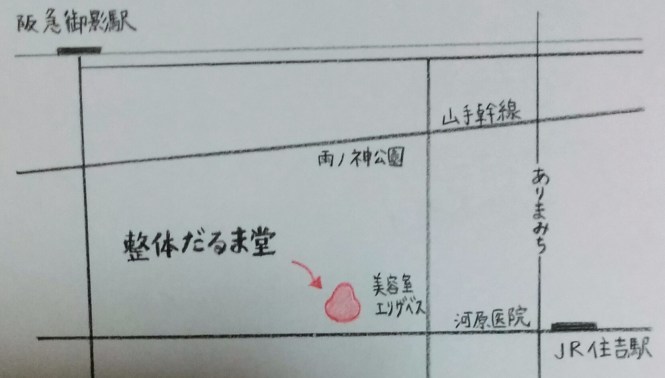 阪急御影駅
山手幹線
雨ノ神公園
ありまみち
整体だるま堂
美容室
エリザベス
河原医院
JR住吉駅